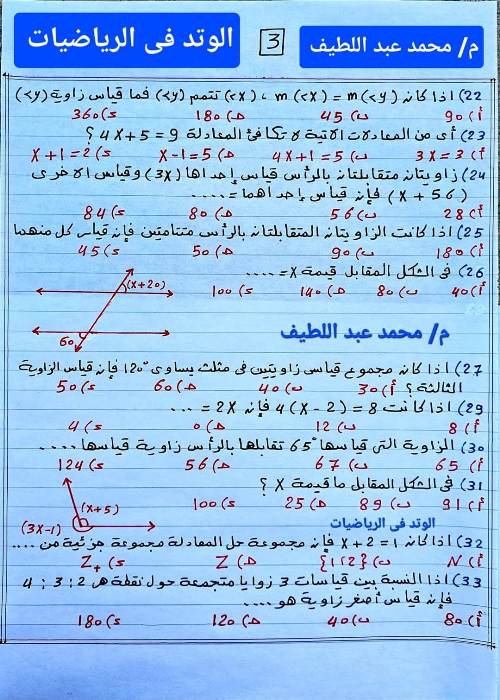 الوتد فى الرياضيات
3
م/ محمد عبد اللطيف
22) اذا كان m(<x) = m(<y) ، (<x) تتمم (<y) فما قياس زاوية (<y)
أ) 90 ب) 45 ح) 180 د) 360
23) أى من المعادلات الاتية لا تكافئ المعادلة 4x+5=9 ؟
أ) 3x=3 ب) 4x+1=5 ح) x-1=5 د) x+1=2
24) زاويتان متقابلتان بالرأس قياس إحداها (3x) وقياس الاخرى
(x+56) فإن قياس إحداهما = ....
أ) 28 ب) 56 ح) 80 د) 84
25) اذا كانت الزاويتان المتقابلتان بالرأس متتامتين فإن قياس كل منهما
أ) 180 ب) 90 ح) 50 د) 45
26) فى الشكل المقابل قيمة x = ....
(x+20)
أ) 40 ب) 80 ح) 140 د) 100
60
م/ محمد عبد اللطيف
27) اذا كان مجموع قياس زاويتين فى مثلث يساوى 120° فإن قياس الزاوية
الثالثة ؟ أ) 30 ب) 40 ح) 60 د) 50
29) اذا كانت 4(x-2)=8 فإن 2x = ...
أ) 8 ب) 12 ح) 0 د) 4
30) الزاوية التى قياسها 65° تقابلها بالرأس زاوية قياسها ....
أ) 65 ب) 67 ح) 56 د) 124
31) فى الشكل المقابل ما قيمة x ؟
أ) 91 ب) 89 ح) 25 د) 100
(x+5)
(3x-1)
الوتد فى الرياضيات
32) اذا كان x+2=1 فإن مجموعة حل المعادلة مجموعة جزئية من ....
أ) N ب) {1,2} ح) Z د) Z+
33) اذا النسبة بين قياسات 3 زوايا متجمعة حول نقطة هى 2 : 3 : 4
فإن قياس أصغر زاوية هو ....
أ) 80 ب) 40 ح) 120 د) 180